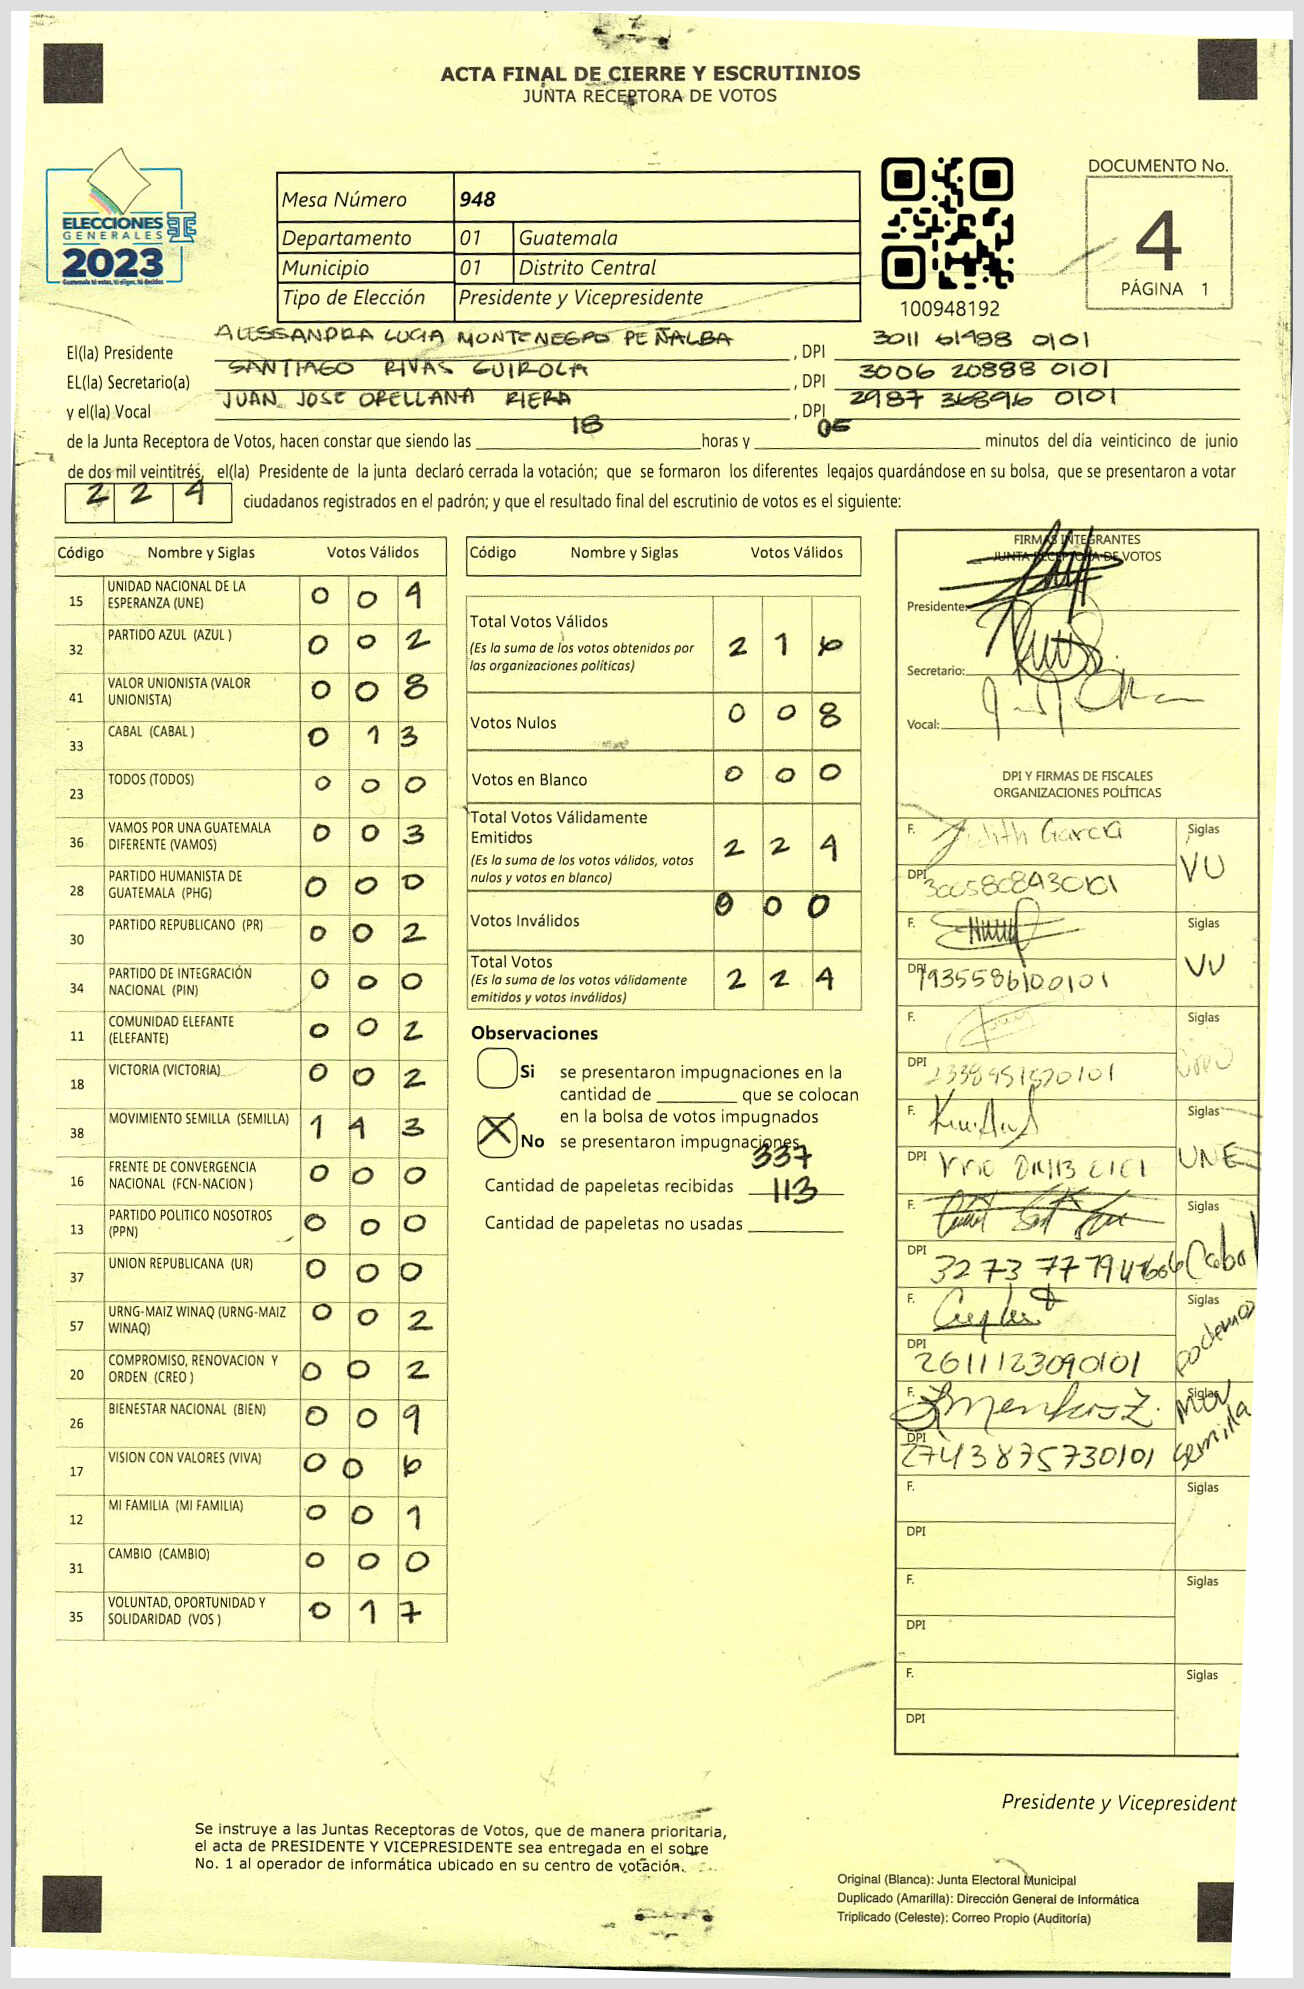 ACTA FINAL DE CIERRE Y ESCRUTINIOS
JUNTA RECEPTORA DE VOTOS
ELECCIONES
GENERALES
2023
Mesa Número 948
Departamento 01 Guatemala
Municipio 01 Distrito Central
Tipo de Elección Presidente y Vicepresidente
100948192
DOCUMENTO No.
4
PÁGINA 1
El(la) Presidente ALESSANDRA LUCIA MONTENEGRO PEÑALBA, DPI 3011 61498 0101
EL(la) Secretario(a) SANTIAGO RIVAS GUIROLA, DPI 3006 20888 0101
y el(la) Vocal JUAN JOSE ORELLANA RIERA, DPI 2987 36896 0101
de la Junta Receptora de Votos, hacen constar que siendo las 18 horas y 05 minutos del día veinticinco de junio
de dos mil veintitrés, el(la) Presidente de la junta declaró cerrada la votación; que se formaron los diferentes legajos guardándose en su bolsa, que se presentaron a votar
224 ciudadanos registrados en el padrón; y que el resultado final del escrutinio de votos es el siguiente:
Código Nombre y Siglas Votos Válidos
15 UNIDAD NACIONAL DE LA ESPERANZA (UNE) 0 0 4
32 PARTIDO AZUL (AZUL ) 0 0 2
41 VALOR UNIONISTA (VALOR UNIONISTA) 0 0 8
33 CABAL (CABAL ) 0 1 3
23 TODOS (TODOS) 0 0 0
36 VAMOS POR UNA GUATEMALA DIFERENTE (VAMOS) 0 0 3
28 PARTIDO HUMANISTA DE GUATEMALA (PHG) 0 0 0
30 PARTIDO REPUBLICANO (PR) 0 0 2
34 PARTIDO DE INTEGRACIÓN NACIONAL (PIN) 0 0 0
11 COMUNIDAD ELEFANTE (ELEFANTE) 0 0 2
18 VICTORIA (VICTORIA) 0 0 2
38 MOVIMIENTO SEMILLA (SEMILLA) 1 4 3
16 FRENTE DE CONVERGENCIA NACIONAL (FCN-NACION ) 0 0 0
13 PARTIDO POLITICO NOSOTROS (PPN) 0 0 0
37 UNION REPUBLICANA (UR) 0 0 0
57 URNG-MAIZ WINAQ (URNG-MAIZ WINAQ) 0 0 2
20 COMPROMISO, RENOVACION Y ORDEN (CREO ) 0 0 2
26 BIENESTAR NACIONAL (BIEN) 0 0 9
17 VISION CON VALORES (VIVA) 0 0 6
12 MI FAMILIA (MI FAMILIA) 0 0 1
31 CAMBIO (CAMBIO) 0 0 0
35 VOLUNTAD, OPORTUNIDAD Y SOLIDARIDAD (VOS ) 0 1 7
Código Nombre y Siglas Votos Válidos
Total Votos Válidos 2 1 6
(Es la suma de los votos obtenidos por
las organizaciones políticas)
Votos Nulos 0 0 8
Votos en Blanco 0 0 0
Total Votos Válidamente
Emitidos 2 2 4
(Es la suma de los votos válidos, votos
nulos y votos en blanco)
Votos Inválidos 0 0 0
Total Votos 2 2 4
(Es la suma de los votos válidamente
emitidos y votos inválidos)
Observaciones
Si se presentaron impugnaciones en la
cantidad de ________ que se colocan
en la bolsa de votos impugnados
X No se presentaron impugnaciones
337
Cantidad de papeletas recibidas 113
Cantidad de papeletas no usadas ________
FIRMAS INTEGRANTES
JUNTA RECEPTORA DE VOTOS
Presidente:
Secretario:
Vocal:
DPI Y FIRMAS DE FISCALES
ORGANIZACIONES POLÍTICAS
F. Judith Garcia Siglas VU
DPI
F. Siglas VU
DPI 1935586100101
F. Siglas
DPI
F. Siglas UNE
DPI
F. Siglas Cabal
DPI
F. Siglas podemos
DPI 2611123090101
F. Siglas Mov Semilla
DPI 2743875730101
F. Siglas
DPI
F. Siglas
DPI
F. Siglas
DPI
Presidente y Vicepresident
Se instruye a las Juntas Receptoras de Votos, que de manera prioritaria,
el acta de PRESIDENTE Y VICEPRESIDENTE sea entregada en el sobre
No. 1 al operador de informática ubicado en su centro de votación.
Original (Blanca): Junta Electoral Municipal
Duplicado (Amarilla): Dirección General de Informática
Triplicado (Celeste): Correo Propio (Auditoría)